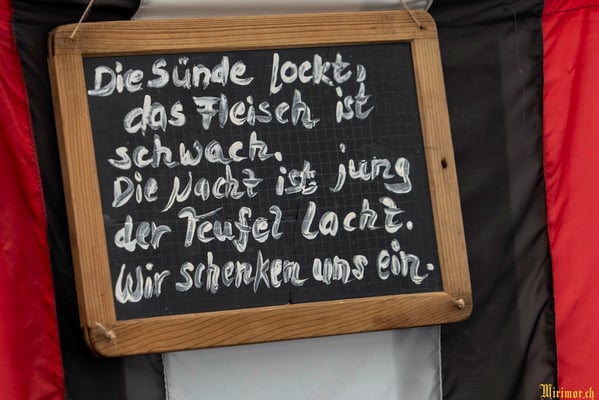 Die Sünde lockt,
das Fleisch ist
schwach.
Die Nacht ist jung
der Teufel lacht.
Wir schenken uns ein.
Mirimor.ch